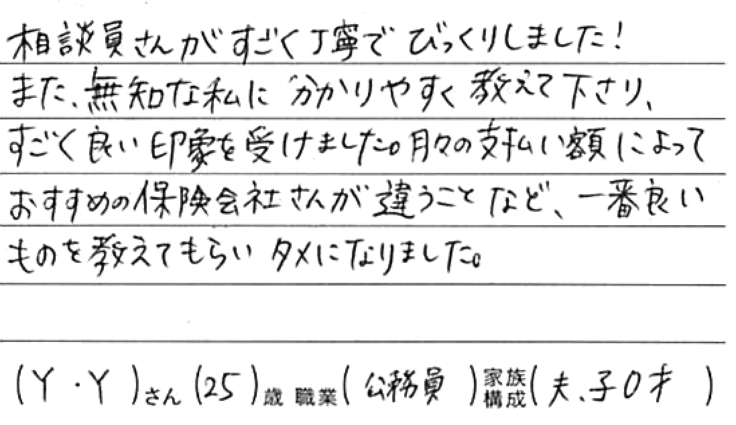 相談員さんがすごく丁寧でびっくりしました!
また、無知な私に分かりやすく教えて下さり、
すごく良い印象を受けました。月々の支払い額によって
おすすめの保険会社さんが違うことなど、一番良い
ものを教えてもらいタメになりました。
(Y・Y)さん(25)歳 職業(公務員)家族構成(夫、子0才)